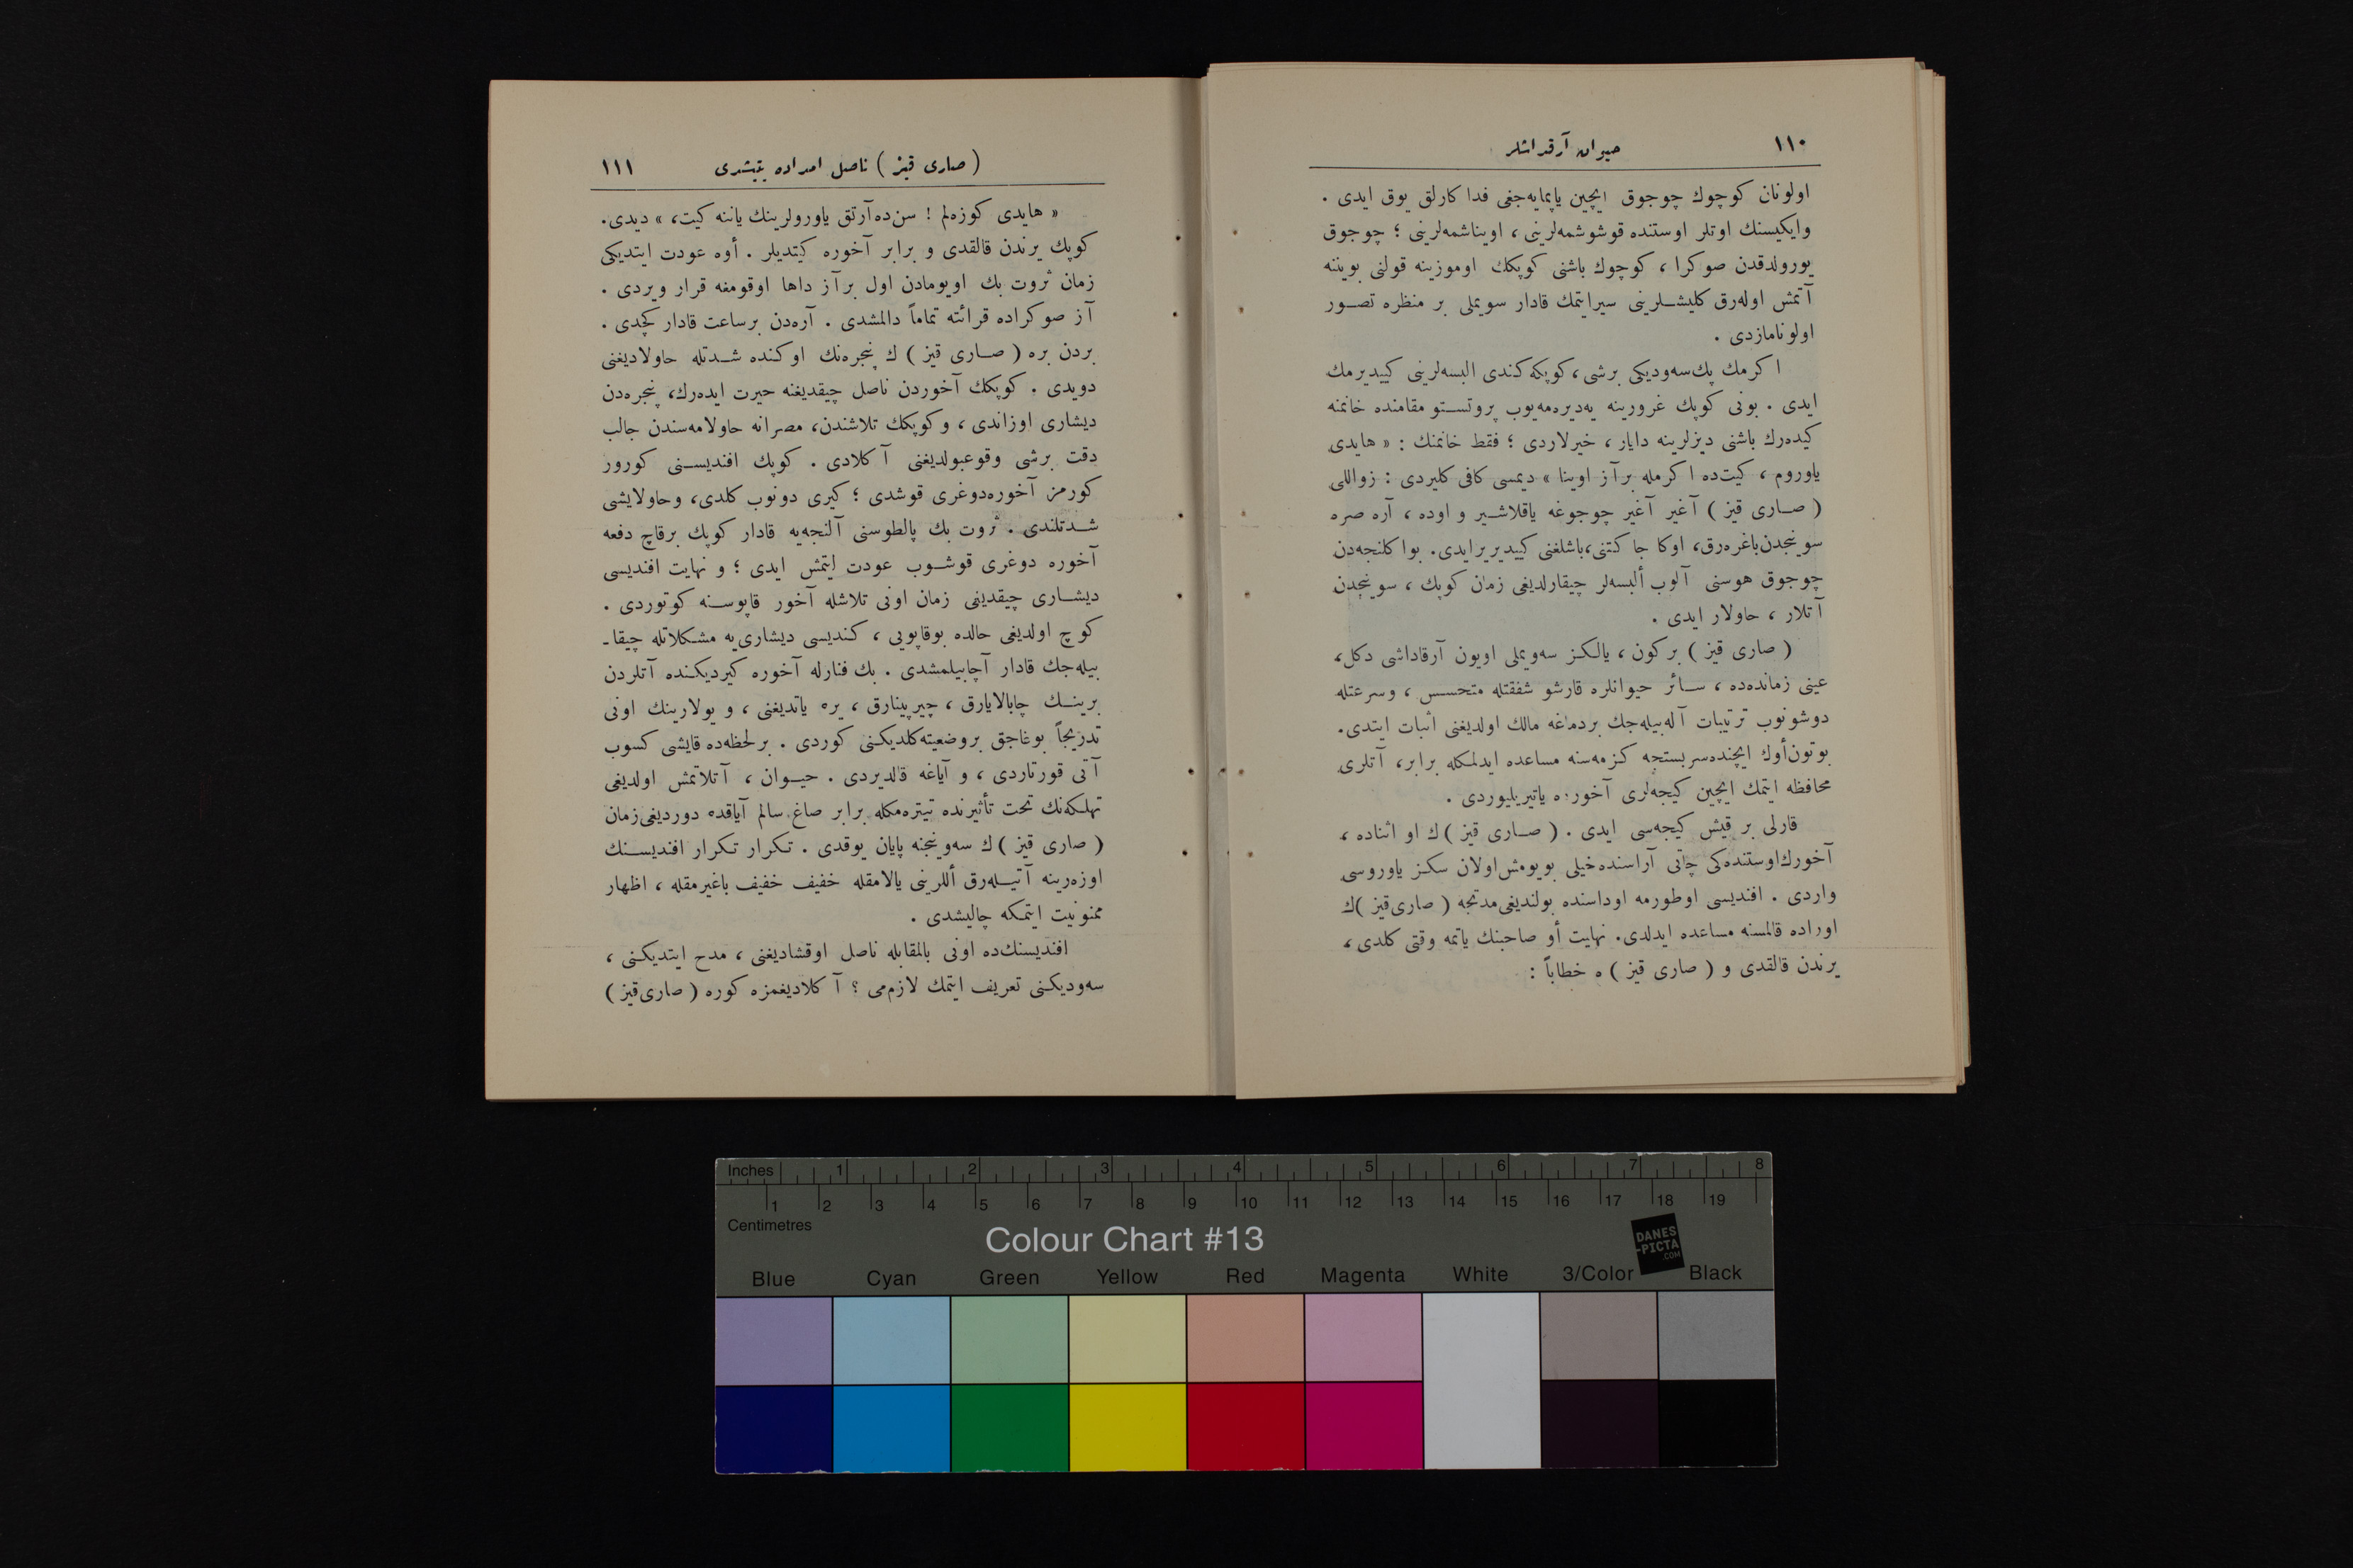 ١١٠
حیوان آرقداشلر
اولونان كوچوك چوجوق ایچین یاپمایه‌جغی فدا كارلق یوق ایدی .
وایكیسنك اوتلر اوستنده قوشوشمه‌لرینی ، اویناشمه‌لرینی ؛ چوجوق
یورولدقدن صوكرا ، كوچوك باشنی كوپكك اوموزینه قولنی بویننه
آتمش اوله‌رق كلیشلرینی سیرایتمك قادار سویملی بر منظره تصور
اولونامازدی .
اكرمك پك‌سه‌ودیكی برشی ، كوپكه كندی البسه‌لرینی كییدیرمك
ایدی . بونی كوپك غرورینه یه‌دیره‌مه‌یوب پروتستو مقامنده خانمنه
كیده‌رك باشنی دیزلرینه دایار ، خیرلاردی ؛ فقط خانمنك : « هایدی
یاوروم ، كیت‌ده اكرمله برآز اوینا » دیمسی كافی كلیردی : زواللی
( صاری قیز ) آغیر آغیر چوجوغه یاقلاشیر و اوده ، آره صره
سوینجدن‌باغره‌رق، اوكا جاكتنی،باشلغنی كییدیریرایدی. بواكلنجه‌دن
چوجوق هوسنی آلوب ألبسه‌لر چیقارلدیغی زمان كوپك ، سوینجدن
آتلار ، حاولار ایدی .
( صاری قیز ) بركون ، یالكز سه‌ویملی اویون آرقاداشی دكل،
عینی زمانده‌ده ، سائر حیوانلره قارشو شفقتله متحسس ، وسرعتله
دوشونوب ترتیبات آله‌بیله‌جك بردماغه مالك اولدیغنی اثبات ایتدی.
بوتون‌أوك ایچنده‌سربستجه كزمه‌سنه مساعده ایدلمكله برابر، آتلری
محافظه ایتمك ایچین كیجه‌لری آخورده یاتیریلیوردی .
قارلی بر قیش كیجه‌سی ایدی . ( صاری قیز )ك او اثناده ،
آخورك‌اوستنده‌كی چاتی آراسنده خیلی بویومش‌اولان سكز یاوروسی
واردی . افندیسی اوطورمه اوداسنده بولندیغی‌مدتجه ( صاری‌قیز )ك
اوراده قالمسنه مساعده ایدلدی. نهایت أو صاحبنك یاتمه وقتی كلدی ،
یرندن قالقدی و ( صاری قیز ) ه خطاباً :
( صاری قیز ) ناصل امداده یتیشدی
١١١
« هایدی كوزه‌لم ! سن‌ده‌آرتق یاورولرینك یاننه كیت، » دیدی.
كوپك یرندن قالقدی و برابر آخوره كیتدیلر . أوه عودت ایتدیكی
زمان ثروت بك اویومادن اول برآز داها اوقومغه قرار ویردی .
آز صوكراده قرائته تماماً دالمشدی . آره‌دن برساعت قادار كچدی .
بردن بره ( صاری قیز ) ك پنجره‌نك اوكنده شدتله حاولادیغنی
دویدی . كوپكك آخوردن ناصل چیقدیغنه حیرت ایده‌رك، پنجره‌دن
دیشاری اوزاندی ، و كوپكك تلاشندن، مصرانه حاولامه‌سندن جالب
دقت برشی وقوعبولدیغنی آكلادی . كوپك افندیسنی كورور
كورمز آخوره‌دوغری قوشدی ؛ كیری دونوب كلدی، وحاولایشی
شدتلندی . ثروت بك پالطوسنی آلنجه‌یه قادار كوپك برقاچ دفعه
آخوره دوغری قوشوب عودت ایتمش ایدی ؛ و نهایت افندیسی
دیشاری چیقدینی زمان اونی تلاشله آخور قاپوسنه كوتوردی .
كوچ اولدیغی حالده بوقاپویی ، كندیسی دیشاری‌یه مشكلاتله چیقا-
بیله‌جك قادار آچابیلمشدی . بك فنارله آخوره كیردیكنده آتلردن
برینك چابالایارق ، چیرپینارق ، یره یاتدیغنی ، و یولارینك اونی
تدریجاً بوغاجق بروضعیته‌كلدیكنی كوردی . برلحظه‌ده قایشی كسوب
آتی قورتاردی ، و آیاغه قالدیردی . حیوان ، آتلاتمش اولدیغی
تهلكه‌نك تحت تأثیرنده تیتره‌مكله برابر صاغ سالم آیاقده دوردیغی‌زمان
( صاری قیز )ك سه‌وینجنه پایان یوقدی . تكرار تكرار افندیسنك
اوزه‌رینه آتیله‌رق أللرینی یالامقله خفیف خفیف باغیرمقله ، اظهار
ممنونیت ایتمكه چالیشدی .
افندیسنك‌ده اونی بالمقابله ناصل اوقشادیغنی ، مدح ایتدیكنی ،
سه‌ودیكنی تعریف ایتمك لازم‌می ؟ آكلادیغمزه كوره ( صاری‌قیز )
Inches 1 2 3 4 5 6 7 8
1 2 3 4 5 6 7 8 9 10 11 12 13 14 15 16 17 18 19
Centimetres
Colour Chart #13
DANES
-PICTA
.COM
Blue Cyan Green Yellow Red Magenta White 3/Color Black